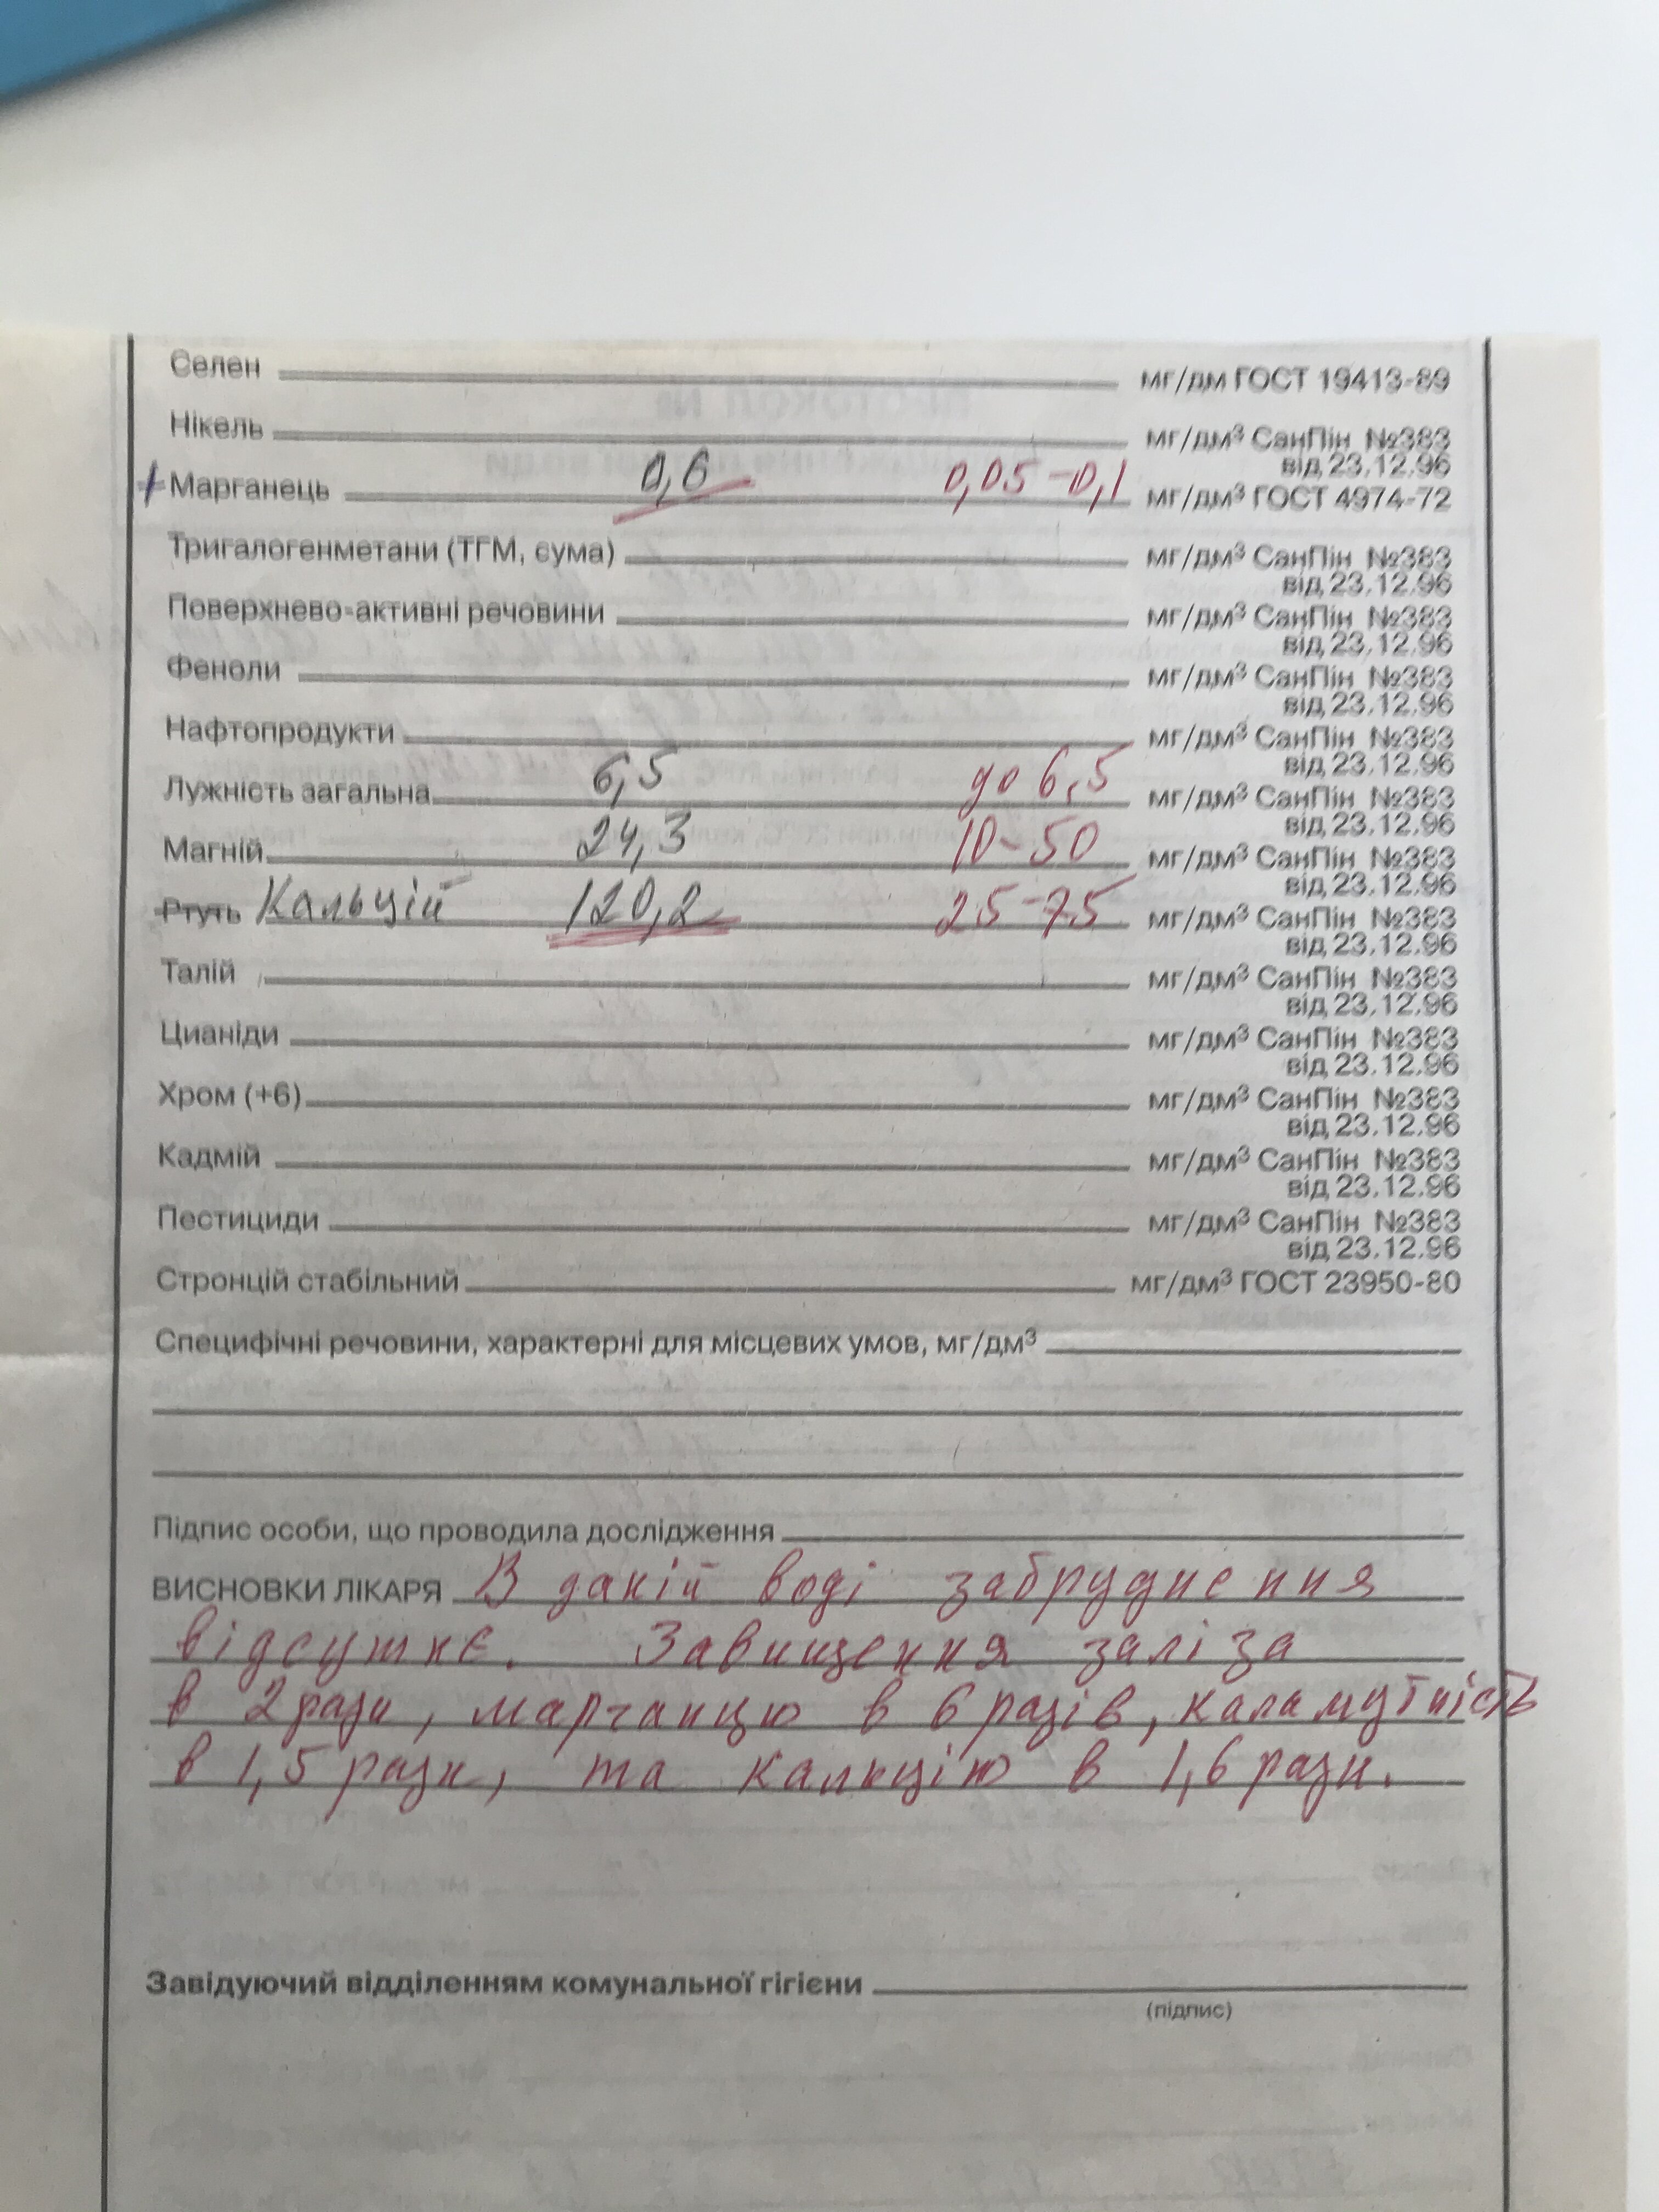 Селен мг/дм ГОСТ 19413-89
Нікель мг/дм³ СанПін №383
від 23.12.96
Марганець 0,6 0,05-0,1 мг/дм³ ГОСТ 4974-72
Тригалогенметани (ТГМ, сума) мг/дм³ СанПін №383
від 23.12.96
Поверхнево-активні речовини мг/дм³ СанПін №383
від 23.12.96
Феноли мг/дм³ СанПін №383
від 23.12.96
Нафтопродукти мг/дм³ СанПін №383
від 23.12.96
Лужність загальна 6,5 до 6,5 мг/дм³ СанПін №383
від 23.12.96
Магній 24,3 10-50 мг/дм³ СанПін №383
від 23.12.96
Ртуть Кальцій 120,2 25-75 мг/дм³ СанПін №383
від 23.12.96
Талій мг/дм³ СанПін №383
від 23.12.96
Цианіди мг/дм³ СанПін №383
від 23.12.96
Хром (+6) мг/дм³ СанПін №383
від 23.12.96
Кадмій мг/дм³ СанПін №383
від 23.12.96
Пестициди мг/дм³ СанПін №383
від 23.12.96
Стронцій стабільний мг/дм³ ГОСТ 23950-80
Специфічні речовини, характерні для місцевих умов, мг/дм³
Підпис особи, що проводила дослідження
ВИСНОВКИ ЛІКАРЯ В даній воді забруднення
відсутнє. Завищення заліза
в 2 рази, марганцю в 6 разів, каламутність
в 1,5 рази, та кальцію в 1,6 рази.
Завідуючий відділенням комунальної гігієни
(підпис)